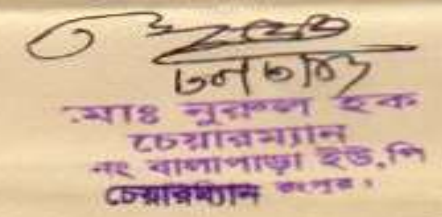 মোঃ নুরুল হক
চেয়ারম্যান
নং বালাপাড়া ইউ,পি
চেয়ারম্যান রংপুর।